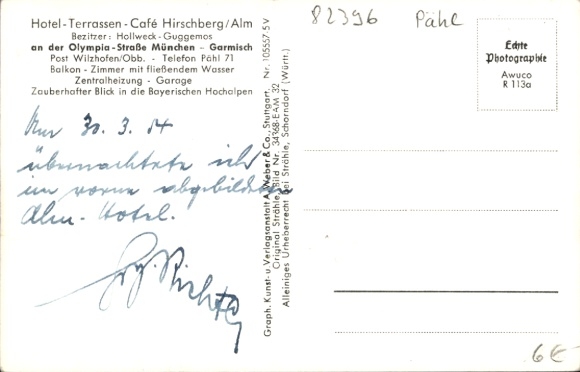 Hotel-Terrassen-Café Hirschberg/Alm
Besitzer: Hollweck-Guggemos
an der Olympia-Straße München – Garmisch
Post Wilzhofen/Obb. - Telefon Pähl 71
Balkon - Zimmer mit fließendem Wasser
Zentralheizung - Garage
Zauberhafter Blick in die Bayerischen Hochalpen
30. 3. 54
übernachtete ich
im vorne abgebildeten
Alm-Hotel.
Richter
Graph. Kunst- u. Verlagsanstalt A. Weber & Co., Stuttgart. Nr. 105557 5 V
Original Strähle-Bild Nr. 34368-EAM 32
Alleiniges Urheberrecht bei Strähle, Schorndorf (Württ.)
82396 Pähl
Echte
Photographie
Awuco
R 113a
6€